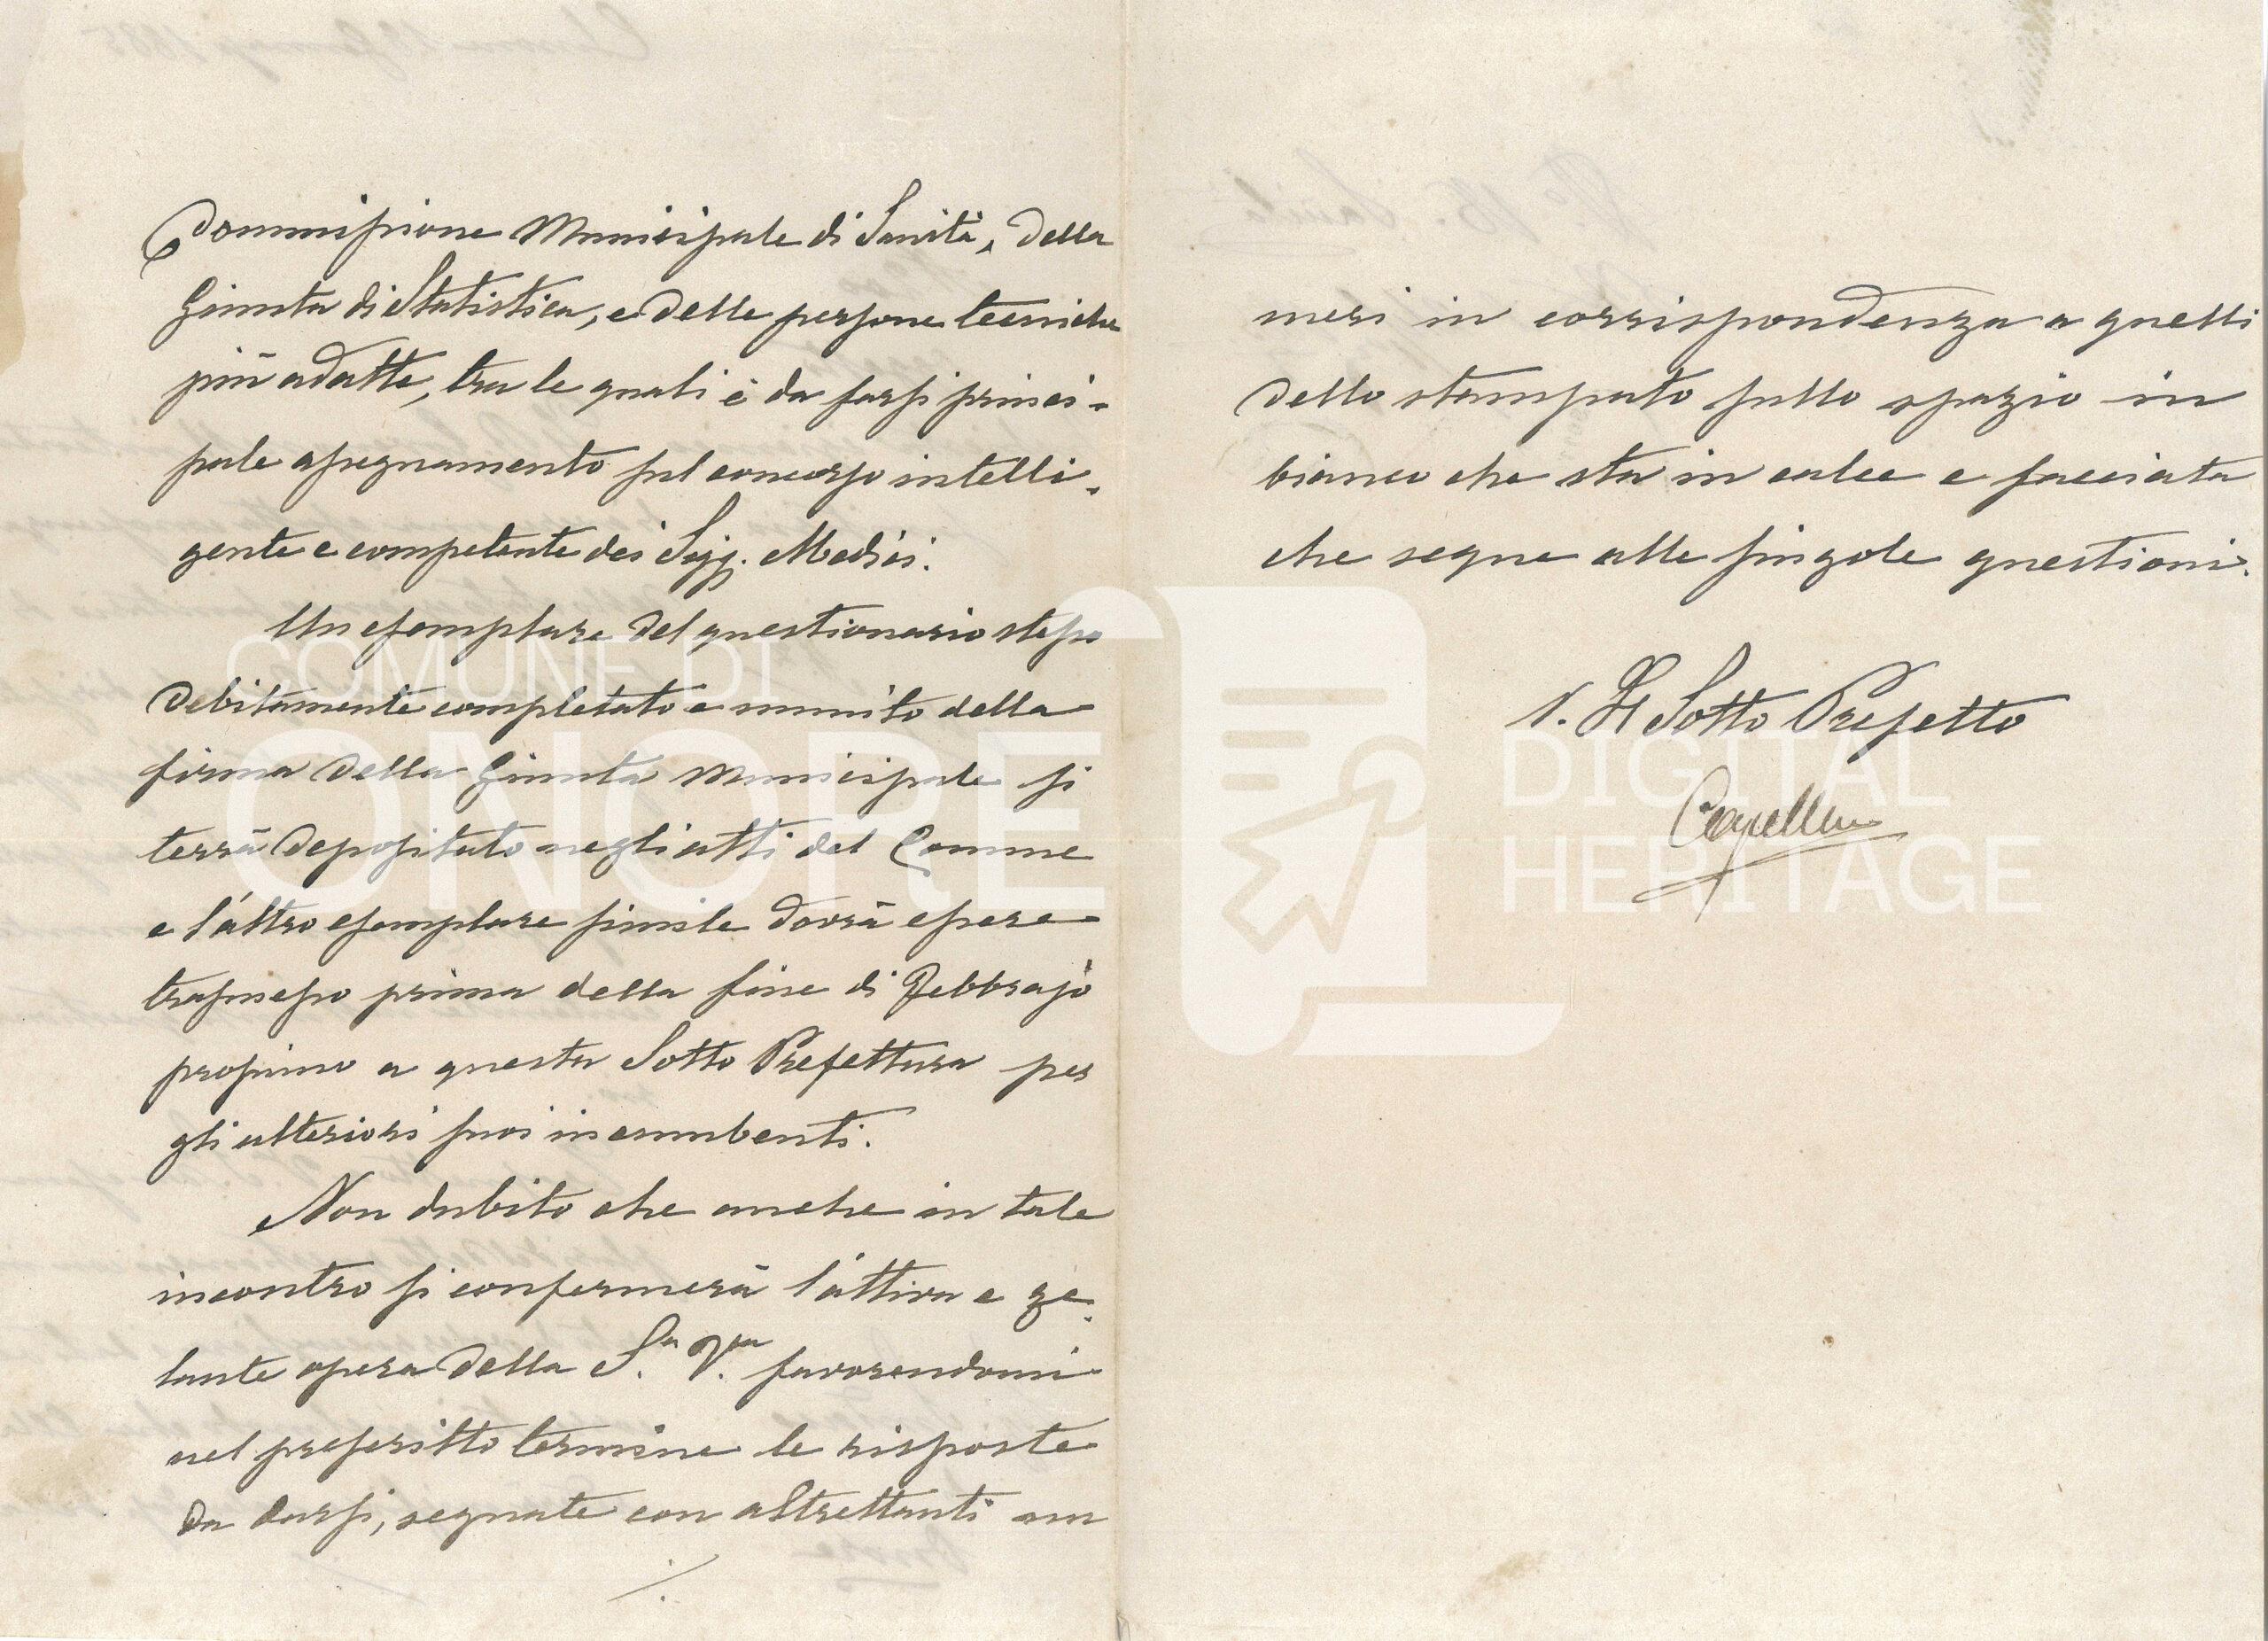 Commissione Municipale di Sanità, della
Giunta di Statistica, e delle persone tecniche
più adatte, tra le quali è da farsi princi-
pale assegnamento sul concorso intelli-
gente e competente dei Sigg. Medici.
Un esemplare del questionario stesso
debitamente completato e munito della
firma della Giunta Municipale si
terrà depositato negli atti del Comune
e l'altro esemplare simile dovrà essere
trasmesso prima della fine di Febbrajo
prossimo a questa Sotto Prefettura per
gli ulteriori suoi incumbenti.
Non dubito che anche in tale
incontro si confermerà l'attiva e ze-
lante opera della S.a V.a favorendomi
nel prescritto termine le risposte
da darsi, segnate con altrettanti nu
./.
meri in corrispondenza a quelli
dello stampato sullo spazio in
bianco che sta in calce e facciata
che segue alle singole questioni.
Il Sotto Prefetto
COMUNE DI
ONORE
DIGITAL
HERITAGE